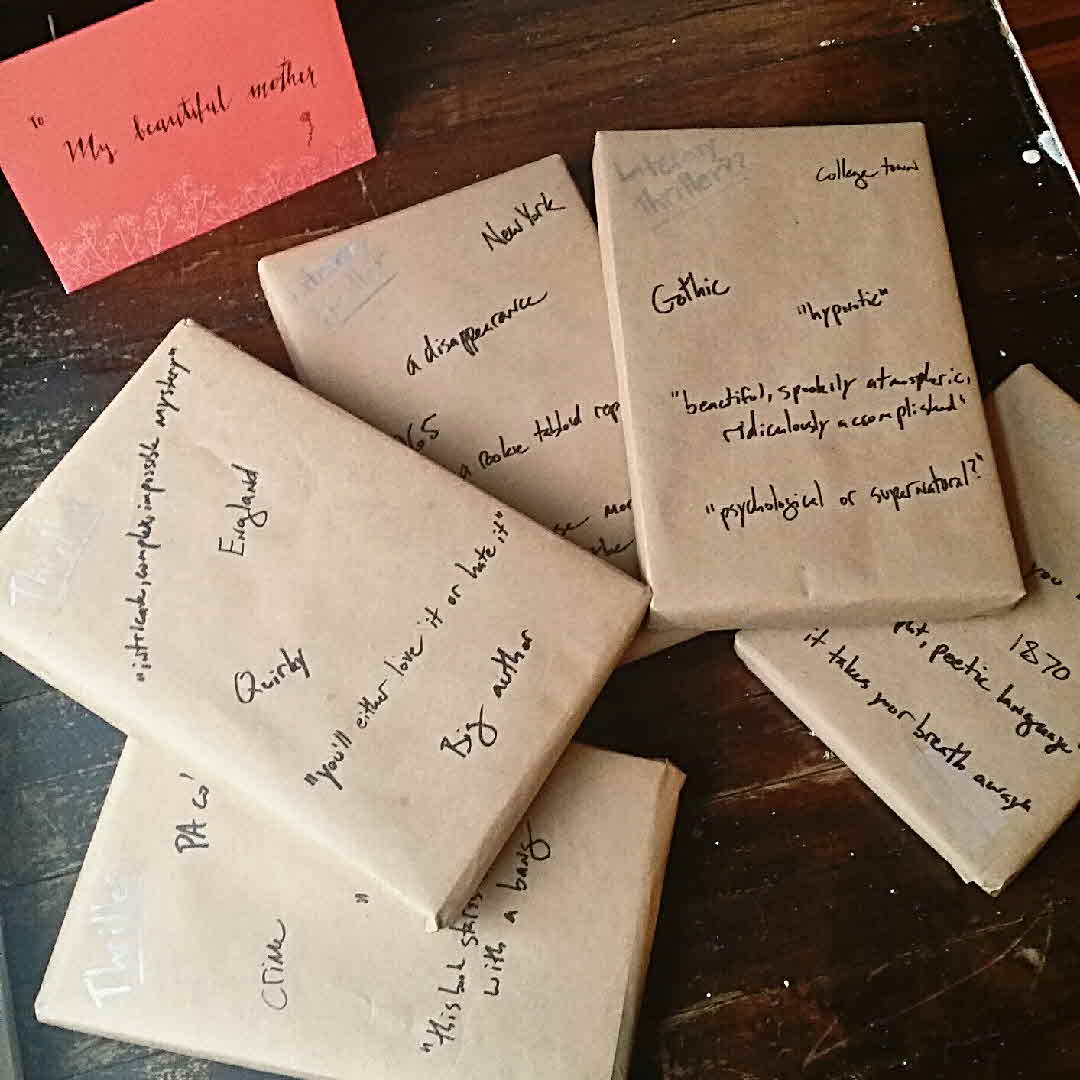 To
My beautiful mother
Literary
Thriller??
College town
Gothic
"hypnotic"
"beautiful, spookily atmospheric,
ridiculously accomplished"
"psychological or supernatural?"
New York
a disappearance
a rookie tabloid rep
the
"intricate, complex, impossible mystery"
England
Quirky
"you'll either love it or hate it"
Big author
Thrille
PA co
crime
"this book starts
with a bang
you
1870
poetic language"
it takes your breath away"